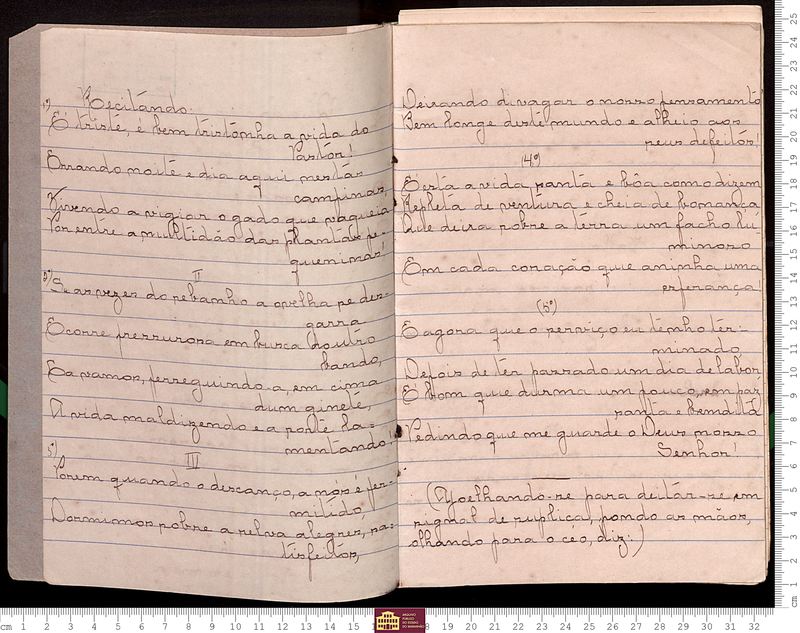 Recitando.
1º) É triste, é bem tristonha a vida do
Pastor!
Errando noite e dia aqui nestas
campinas,
Vivendo a vigiar o gado que vagueia
Por entre a multidão das plantas pe-
queninas!
II
2º) Se as vezes do rebanho a ovelha se des-
garra
E corre pressurosa em busca doutro
bando,
La vamos, perseguindo-a, em cima
dum ginete,
A vida maldizendo e a sorte la-
mentando!
III
Porem quando o descanço, a nós é per-
mitido,
Dormimos sobre a relva alegres, sa-
tisfeitos,
Deixando divagar o nosso pensamento
Bem longe deste mundo e alheio aos
seus defeitos!
(4º)
E esta a vida santa e bôa como dizem
Repleta de ventura e cheia de bonança
Que deixa sobre a terra um facho lu-
minoso
Em cada coração que aninha uma
esperança!
(5º)
E agora que o serviço eu tenho ter-
minado
Depois de ter passado um dia de labor
É bom que durma um pouco, em paz
santa e bemdita
Pedindo que me guarde o Deus nosso
Senhor!
(Ajoelhando-se para deitar-se em
signal de suplica, pondo as mãos,
olhando para o ceo, diz:)
cm 1 2 3 4 5 6 7 8 9 10 11 12 13 14 15
ARQUIVO
PÚBLICO
DO ESTADO
DO MARANHÃO
18 19 20 21 22 23 24 25 26 27 28 29 30 31 32
cm 1 2 3 4 5 6 7 8 9 10 11 12 13 14 15 16 17 18 19 20 21 22 23 24 25